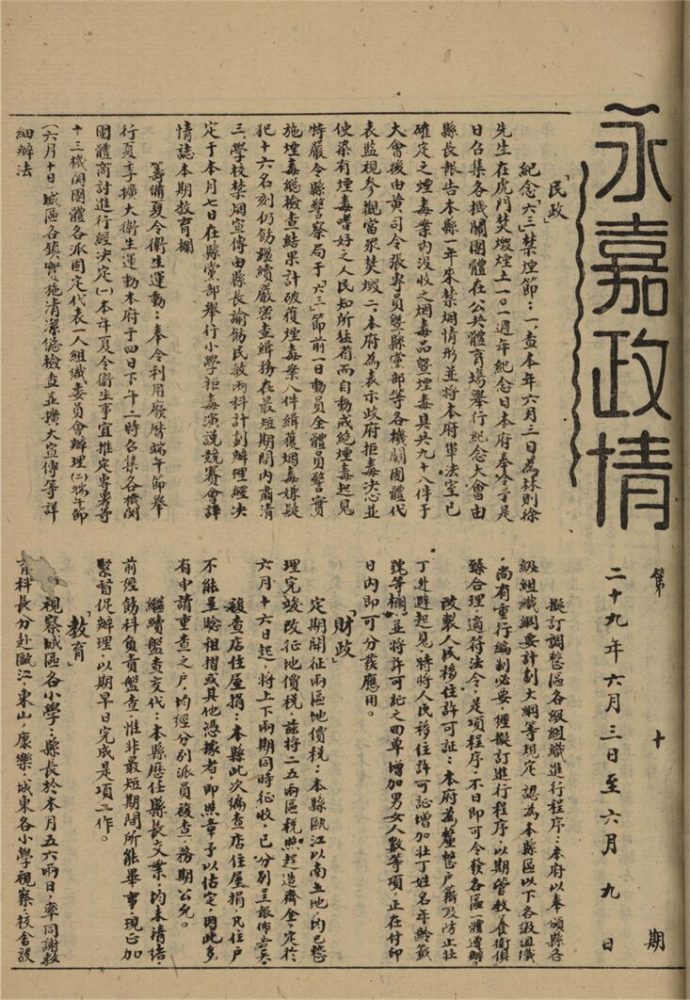 永嘉政情
第十期
二十九年六月三日至六月九日
「民政」
紀念「六三」禁煙節：一、查本年六月三日為林則徐
先生在虎門焚燬煙土一〇一週年紀念日本府奉令于是
日召集各機關團體在公共體育場舉行紀念大會由
縣長報告本縣一年來禁烟情形並將本府軍法室已
確定之煙毒案內沒收之烟毒品暨煙毒具共九十八件于
大會後由黃司令張專員暨縣黨部等各機關團體代
表監視參觀當眾焚燬二、本府為表示政府拒毒決心並
使染有煙毒嗜好之人民知所猛省而自動戒絕煙毒起見
特嚴令縣警察局于「六三」節前一日動員全體員警實
施煙毒總檢查結果計破獲煙毒案八件緝獲烟毒嫌疑
犯十六名刻仍飭繼續嚴密查緝務在最短期間內肅清
三、學校禁烟宣傳由縣長諭飭民教兩科計劃辦理經決
定于本月七日在縣黨部舉行小學拒毒演說競賽會詳
情誌本期教育欄
籌備夏令衛生運動：奉令利用廢曆端午節舉
行夏季擴大衛生運動本府于四日下午二時召集各機關
團體商討進行經決定(一)本年夏令衛生事宜推定專署等
十三機關團體各派固定代表一人組織委員會辦理(二)端午節
(六月十日)城區各鎮實施清潔總檢查並擴大宣傳等詳
細辦法
擬訂調整區各級組織進行程序：本府以奉頒縣各
級組織綱要計劃大綱等規定、認為本縣區以下各級組織
、尚有重行編制必要、經擬訂進行程序、以期管教養衛俱
臻合理、適符法令、是項程序、不日即可令發各區一體遵辦。
改製人民移住許可証：本府為釐整戶籍及防止壯
丁逃避起見、特將人民移住許可証增加壯丁姓名年齡籤
號等欄、並將許可証之回單、增加男女人數等項、正在付印
日內即可分發應用。
「財政」
定期開征兩區地價稅：本縣甌江以南土地、均已整
理完竣、改征地價稅、茲將二五兩區稅照趕造齊全、定於
六月十六日起、將上下兩期同時征收、已分別呈報佈告矣。
複查店住屋捐：本縣此次徧查店住屋捐、凡住戶
不能呈驗租摺或其他憑據者、即照章予以估定、因此多
有申請重查之戶、均經分別派員複查、務期公允。
繼續盤查交代：本縣歷任縣長交案、均未清結、
前經飭科負責盤查、惟非最短期間所能畢事、現正加
緊督促辦理、以期早日完成是項工作。
「教育」
視察城區各小學：縣長於本月五六兩日、率同謝教
育科長分赴甌江、東山、康樂、城東各小學視察、校舍設